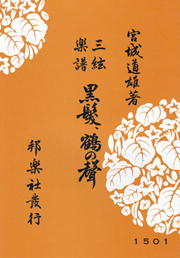 宮城道雄著
三絃
樂譜
黒髮、鶴の聲
邦樂社發行
1501